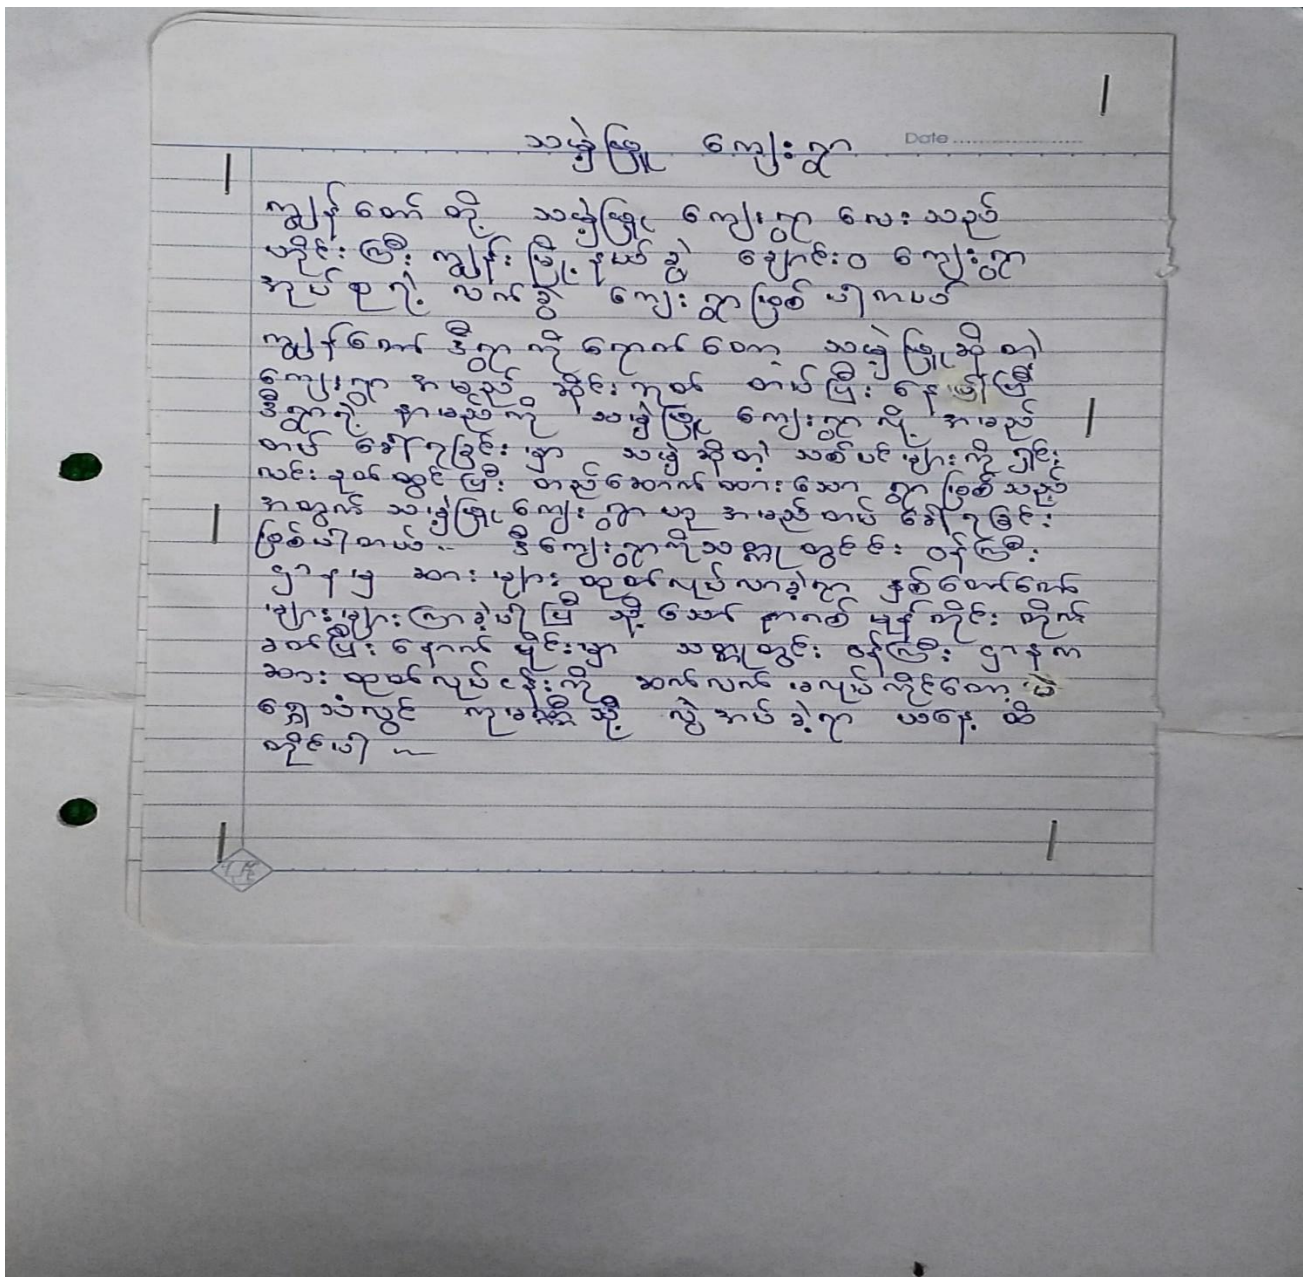 သမဲ့ဖြူ ကျေးရွာ
Date
ကျွန်တော်တို့ သမဲ့ဖြူ ကျေးရွာ လေးသည်
ဟိုင်းကြီးကျွန်းမြို့နယ်ခွဲ ချောင်းဝ ကျေးရွာ
အုပ်စုရဲ့ လက်ခွဲ ကျေးရွာဖြစ်ပါတယ်
ကျွန်တော် ဒီရွာကို ရောက်တော့ သမဲ့ဖြူဆိုတဲ့
ကျေးရွာ အမည် ဆိုင်းဘုတ် တပ်ပြီး နေပါပြီ
ဒီရွာရဲ့ နာမည်ကို သမဲ့ဖြူ ကျေးရွာလို့ အမည်
တပ် ခေါ်ရခြင်းမှာ သမဲ့ဆိုတဲ့ သစ်ပင်များကို ရှင်း
လင်းခုတ်ထွင်ပြီး တည်ဆောက်ထားသော ရွာဖြစ်သည့်
အတွက် သမဲ့ဖြူကျေးရွာဟု အမည်တပ် ခေါ်ရခြင်း
ဖြစ်ပါတယ်.. ဒီကျေးရွာကိုသတ္တုတွင်း ဝန်ကြီး
ဌာနမှ ဆားများ ထုတ်လုပ်လာခဲ့ရာ နှစ်တော်တော်
များများကြာခဲ့ပါပြီ သို့သော် နာဂစ် မုန်တိုင်း တိုက်
ခတ်ပြီး နောက်ပိုင်းမှာ သတ္တုတွင်း ဝန်ကြီးဌာနက
ဆားထုတ်လုပ်ငန်းကို ဆက်လက် မလုပ်ကိုင်တော့ပဲ
ရွှေသံလွင် ကုမ္ပဏီသို့ လွှဲအပ်ခဲ့ရာ ယနေ့ ထိ
တိုင်ပါ ~